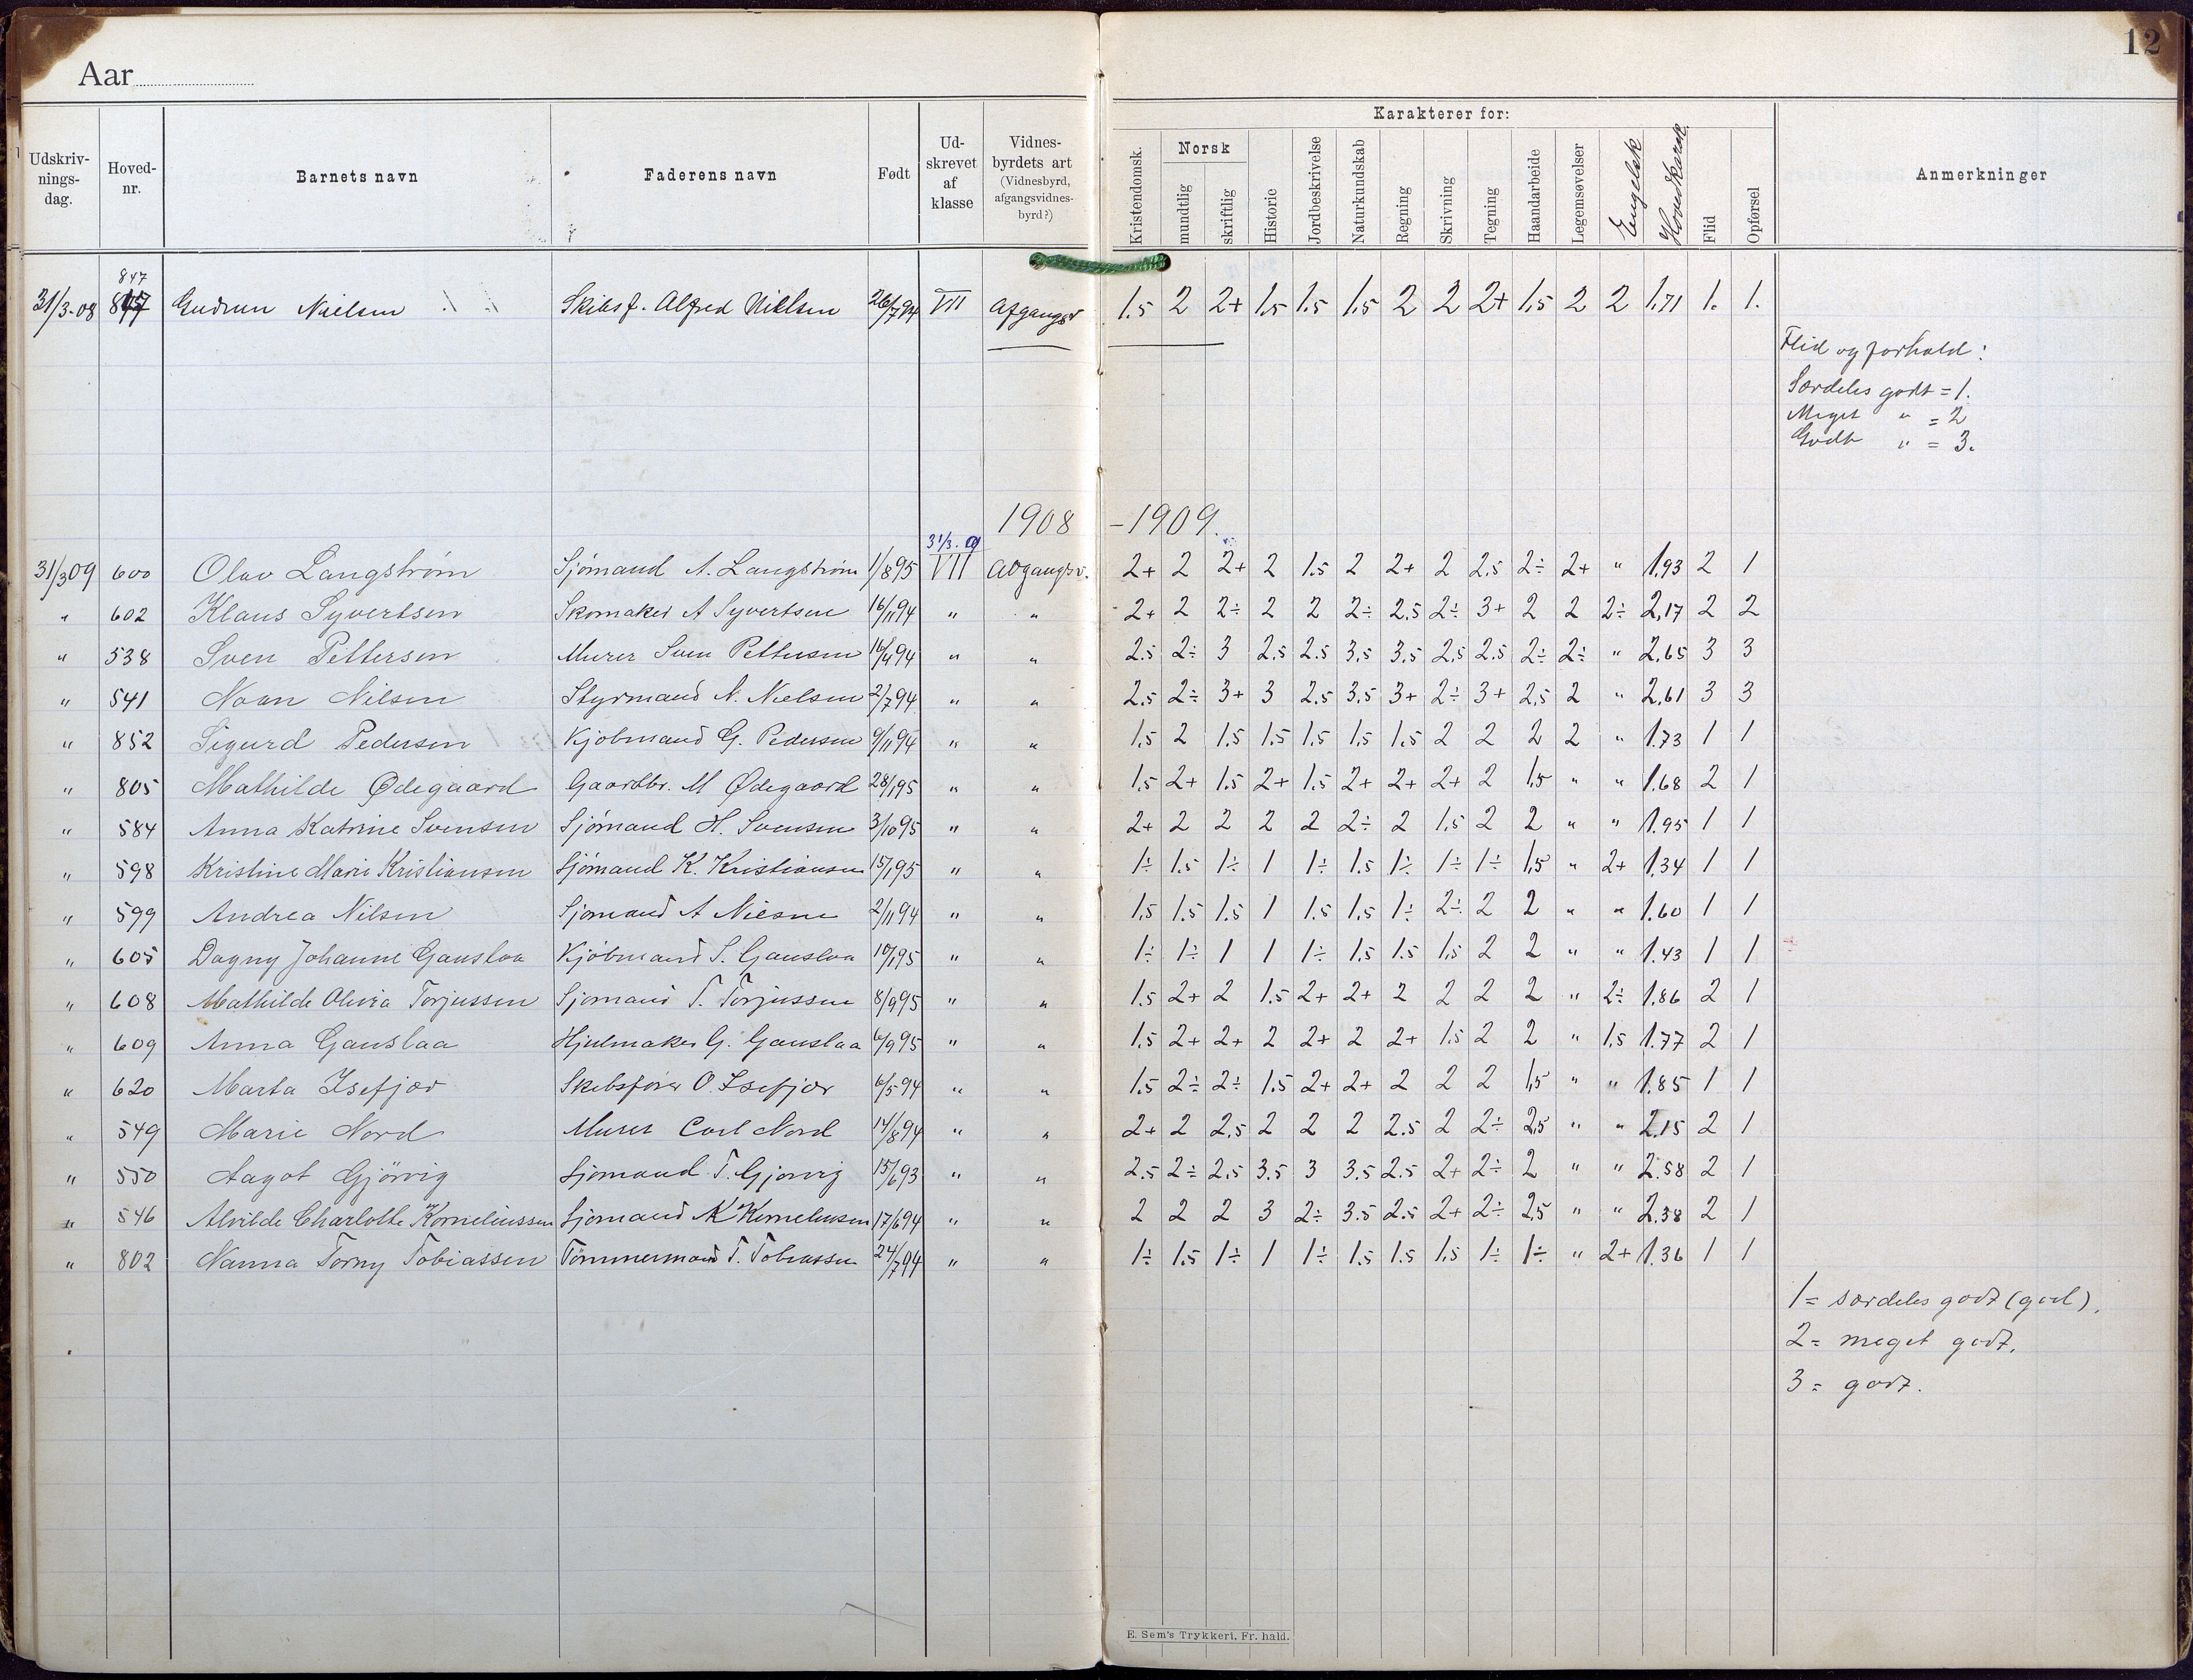 12
Aar
Udskriv-nings-dag. Hoved-nr. Barnets navn Faderens navn Født Ud-skrevet af klasse Vidnes-byrdets art (Vidnesbyrd, afgangsvidnes-byrd?) Karakterer for: Kristendomsk. Norsk mundtlig skriftlig Historie Jordbeskrivelse Naturkundskab Regning Skrivning Tegning Haandarbeide Legemsøvelser Engelsk Hovedkarak. Flid Opførsel Anmerkninger
847
31/3-08 Gudrun Nielsen Skibsf. Alfred Nielsen 26/7 94 VII Afgangsv 1.5 2 2+ 1.5 1.5 1.5 2 2 2+ 1,5 2 2 1,71 1. 1.
Flid og forhold:
Særdeles godt = 1.
Meget " = 2
Godt " = 3.
1908 - 1909.
31/3. 09
31/3 09 600 Olav Langstrøm Sjømand A. Langstrøm 1/8 95 VII Avgangsv. 2+ 2 2+ 2 1.5 2 2+ 2 2,5 2÷ 2+ " 1,93 2 1
" 602 Klaus Syvertsen Skomaker A Syvertsen 16/11 94 " " 2+ 2 2÷ 2 2 2÷ 2,5 2÷ 3+ 2 2 2÷ 2,17 2 2
" 538 Sven Pettersen Murer Sven Pettersen 16/4 94 " " 2.5 2÷ 3 2,5 2.5 3,5 3.5 2,5 2.5 2÷ 2÷ " 2,65 3 3
" 541 Noan Nilsen Styrmand N. Nielsen 2/7 94 " " 2,5 2÷ 3+ 3 2,5 3,5 3+ 2÷ 3+ 2,5 2 " 2,61 3 3
" 852 Sigurd Pedersen Kjøbmand G. Pedersen 9/11 94 " " 1,5 2 1.5 1.5 1,5 1,5 1,5 2 2 2 2 " 1.73 1 1
" 805 Mathilde Ødegaard Gaardbr. M Ødegaard 28/1 95 " " 1,5 2+ 1.5 2+ 1.5 2+ 2+ 2+ 2 1,5 " " 1.68 2 1
" 584 Anna Katrine Svensen Sjømand H. Svensen 3/10 95 " " 2+ 2 2 2 2 2÷ 2 1,5 2 2 " " 1.95 1 1
" 598 Kristine Marie Kristiansen Sjømand K. Kristiansen 15/1 95 " " 1÷ 1.5 1÷ 1 1÷ 1.5 1÷ 1÷ 1÷ 1,5 " 2+ 1,34 1 1
" 599 Andrea Nilsen Sjømand A 2/11 94 " " 1,5 1.5 1.5 1 1.5 1,5 1÷ 2÷ 2 2 " " 1.60 1 1
" 605 Dagny Johanne Gauslaa Kjøbmand S. Gauslaa 10/1 95 " " 1÷ 1÷ 1 1 1÷ 1,5 1.5 1,5 2 2 " " 1.43 1 1
" 608 Mathilde Olivia Torjussen Sjømand T. Torjussen 8/9 95 " " 1.5 2+ 2 1.5 2+ 2+ 2 2 2 2 " 2÷ 1,86 2 1
" 609 Anna Gauslaa Hjulmaker G. Gauslaa 6/9 95 " " 1,5 2+ 2+ 2 2+ 2 2+ 1.5 2 2 " 1,5 1.77 2 1
" 620 Marta Isefjær Skibsfører O. Isefjær 6/5 94 " " 1.5 2÷ 2÷ 1.5 2+ 2+ 2 2 2 1,5 " " 1.85 1 1
" 549 Marie Nord Murer Carl Nord 14/8 94 " " 2+ 2 2,5 2 2 2 2.5 2 2÷ 2,5 " " 2,15 2 1
" 550 Aagot Gjørvig Sjømand T. Gjørvig 15/6 93 " " 2.5 2÷ 2,5 3.5 3 3.5 2.5 2+ 2÷ 2 " " 2.58 2 1
" 546 Alvilde Charlotte Korneliussen Sjømand K Korneliussen 17/6 94 " " 2 2 2 3 2÷ 3.5 2.5 2+ 2÷ 2,5 " " 2.38 2 1
" 802 Nanna Torny Tobiassen Tømmermand T. Tobiassen 24/7 94 " " 1÷ 1.5 1÷ 1 1÷ 1.5 1.5 1,5 1÷ 1÷ " 2+ 1.36 1 1
1 = særdeles godt (god).
2 = meget godt.
3 = godt.
E. Sem's Trykkeri, Fr. hald.